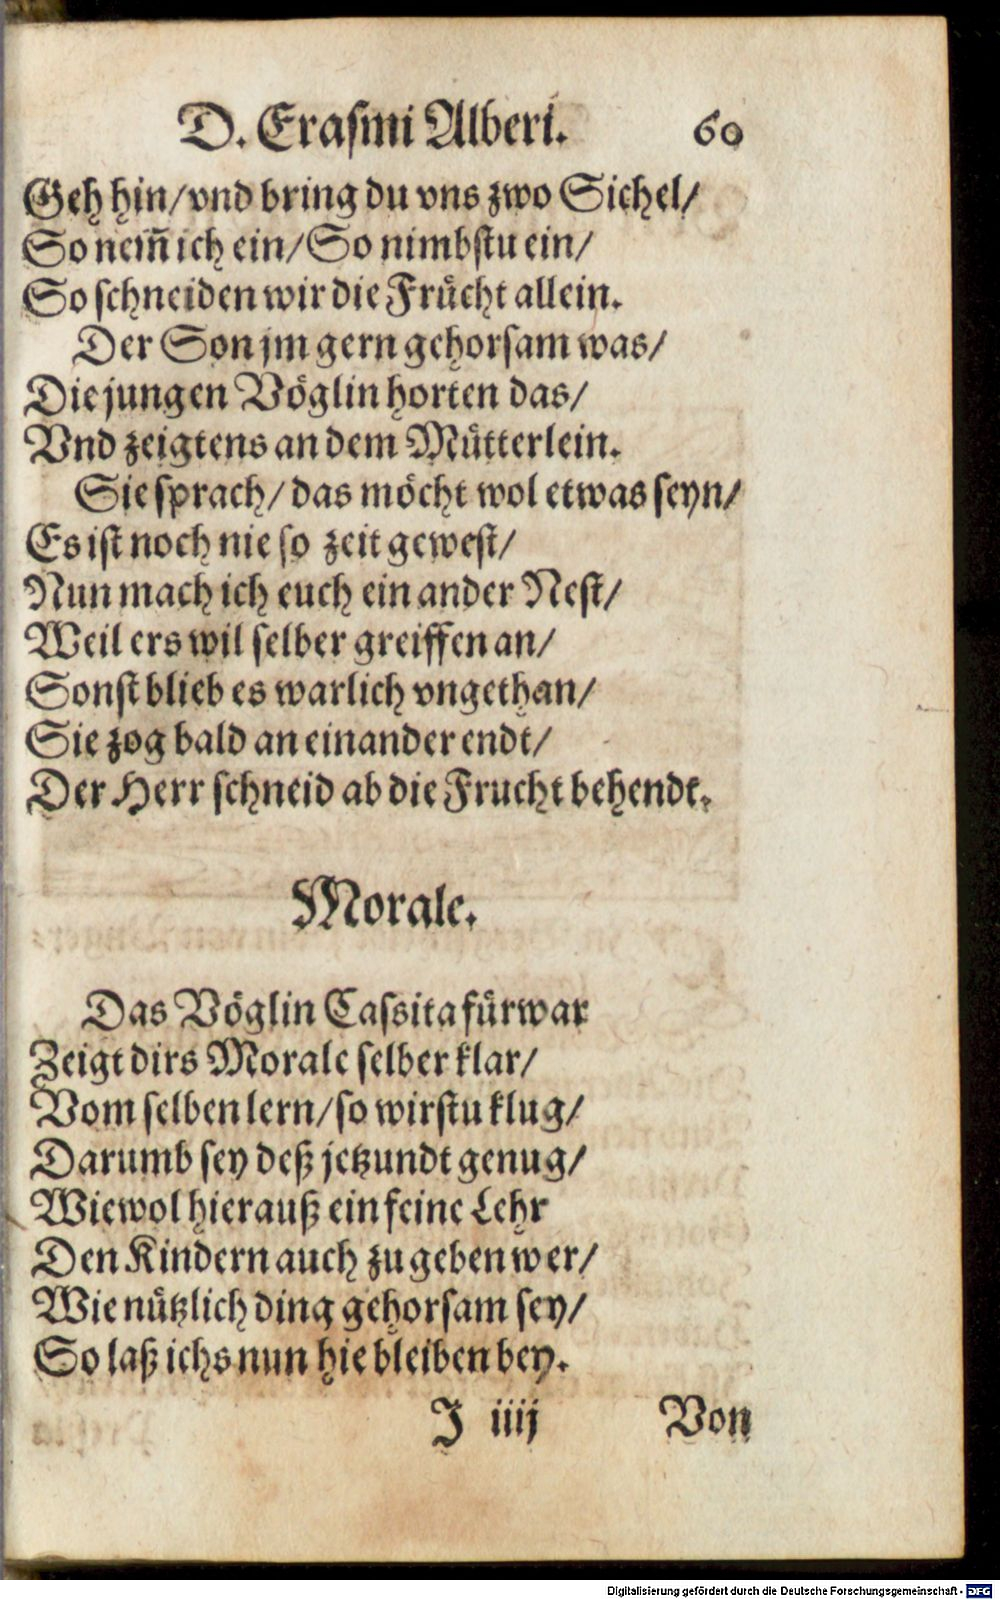 D. Erasmi Alberi. 60
Geh hin/ vnd bring du vns zwo Sichel/
So nem̃ ich ein/ So nimbstu ein/
So schneiden wir die Frücht allein.
Der Son jm gern gehorsam was/
Die jungen Vöglin horten das/
Vnd zeigtens an dem Mütterlein.
Sie sprach/ das möcht wol etwas seyn/
Es ist noch nie so zeit gewest/
Nun mach ich euch ein ander Nest/
Weil ers wil selber greiffen an/
Sonst blieb es warlich vngethan/
Sie zog bald an ein ander endt/
Der Herr schneid ab die Frucht behendt.
Morale.
Das Vöglin Cassita fürwar
Zeigt dirs Morale selber klar/
Vom selben lern/ so wirstu klug/
Darumb sey deß jetzundt genug/
Wiewol hierauß ein feine Lehr
Den Kindern auch zu geben wer/
Wie nützlich ding gehorsam sey/
So laß ichs nun hie bleiben bey.
J iiij Von
Digitalisierung gefördert durch die Deutsche Forschungsgemeinschaft - DFG